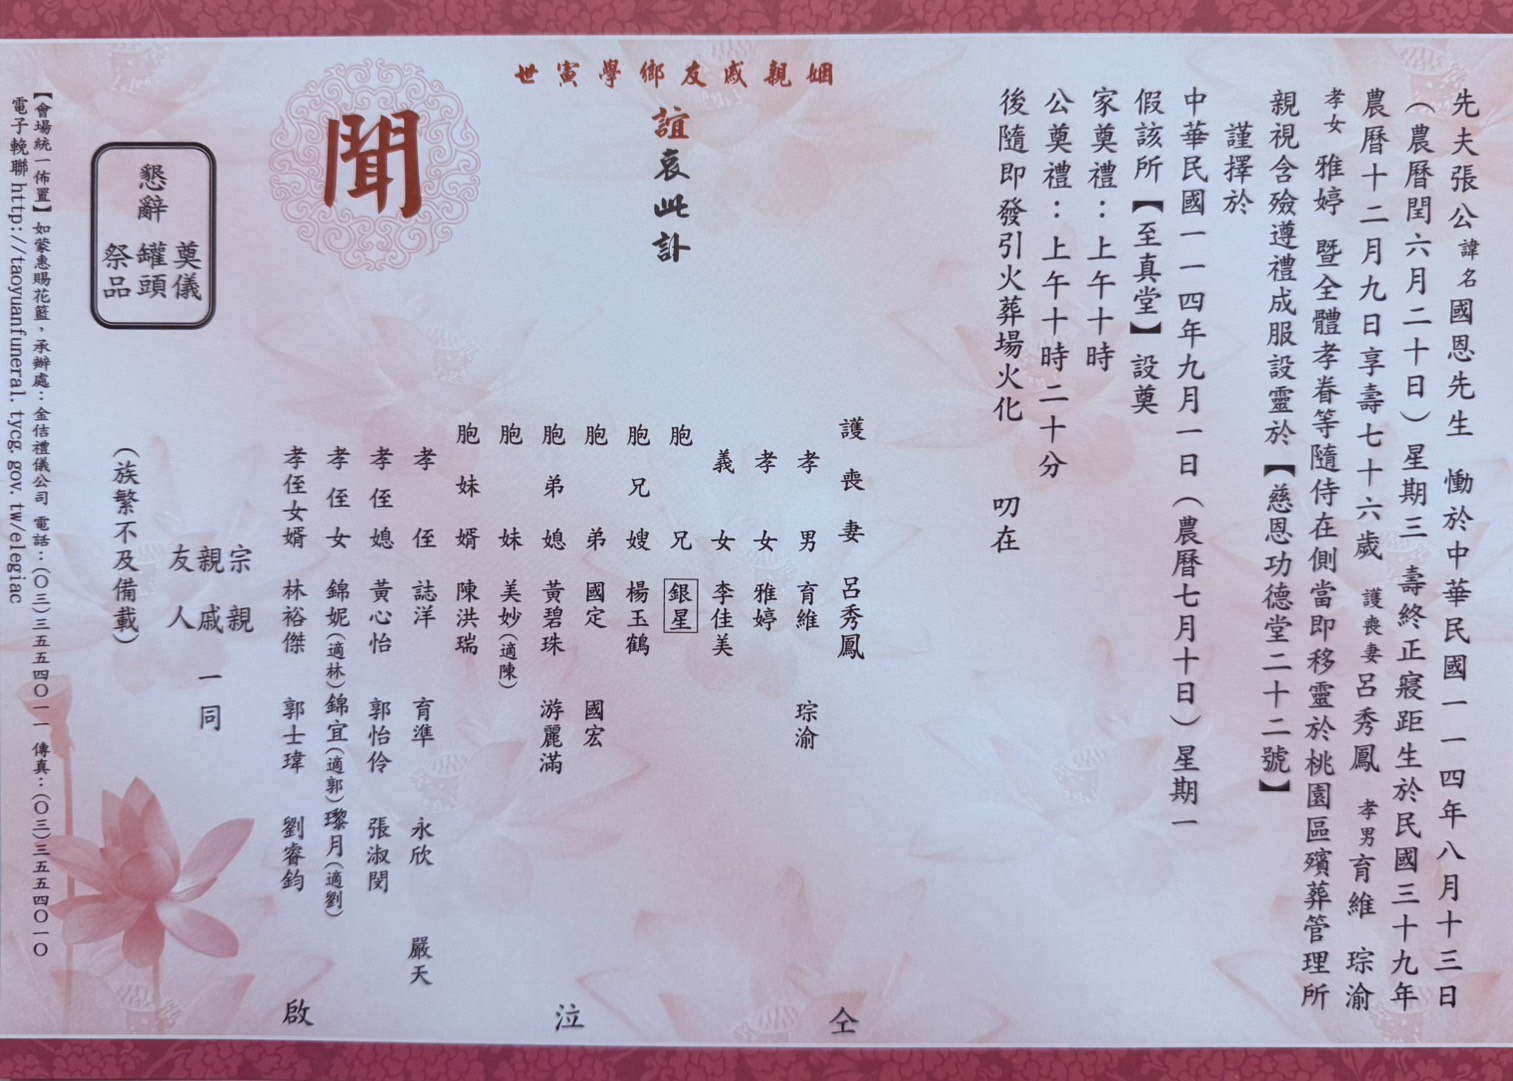 先夫張公諱名國恩先生　慟於中華民國一一四年八月十三日
（農曆閏六月二十日）星期三　壽終正寢距生於民國三十九年
農曆十二月九日享壽七十六歲　護喪妻呂秀鳳　孝男育維　琮渝
孝女　雅婷　暨全體孝眷等隨侍在側當即移靈於桃園區殯葬管理所
親視含殮遵禮成服設靈於【慈恩功德堂二十二號】
謹擇於
中華民國一一四年九月一日（農曆七月十日）星期一
假該所【至真堂】設奠
家奠禮：上午十時
公奠禮：上午十時二十分
後隨即發引火葬場火化　叨在
姻親戚友鄉學寅世
誼哀此訃
聞
護喪妻　呂秀鳳
孝男　育維　琮渝
孝女　雅婷
義女　李佳美
胞兄　銀星
胞兄嫂　楊玉鶴
胞弟　國定　國宏
胞弟媳　黃碧珠　游麗滿
胞妹　美妙（適陳）
胞妹婿　陳洪瑞
孝侄　誌洋　育準　永欣　嚴天
孝侄媳　黃心怡　郭怡伶　張淑閔
孝侄女　錦妮（適林）錦宜（適郭）瓈月（適劉）
孝侄女婿　林裕傑　郭士瑋　劉睿鈞
仝　泣　啟
宗親
親戚　一同
友人
（族繁不及備載）
懇辭
奠儀
罐頭
祭品
【會場統一佈置】如蒙惠賜花籃，承辦處：金佶禮儀公司　電話：（〇三）三五五四〇一一　傳真：（〇三）三五五四〇一〇
電子輓聯 http://taoyuanfuneral.tycg.gov.tw/elegiac